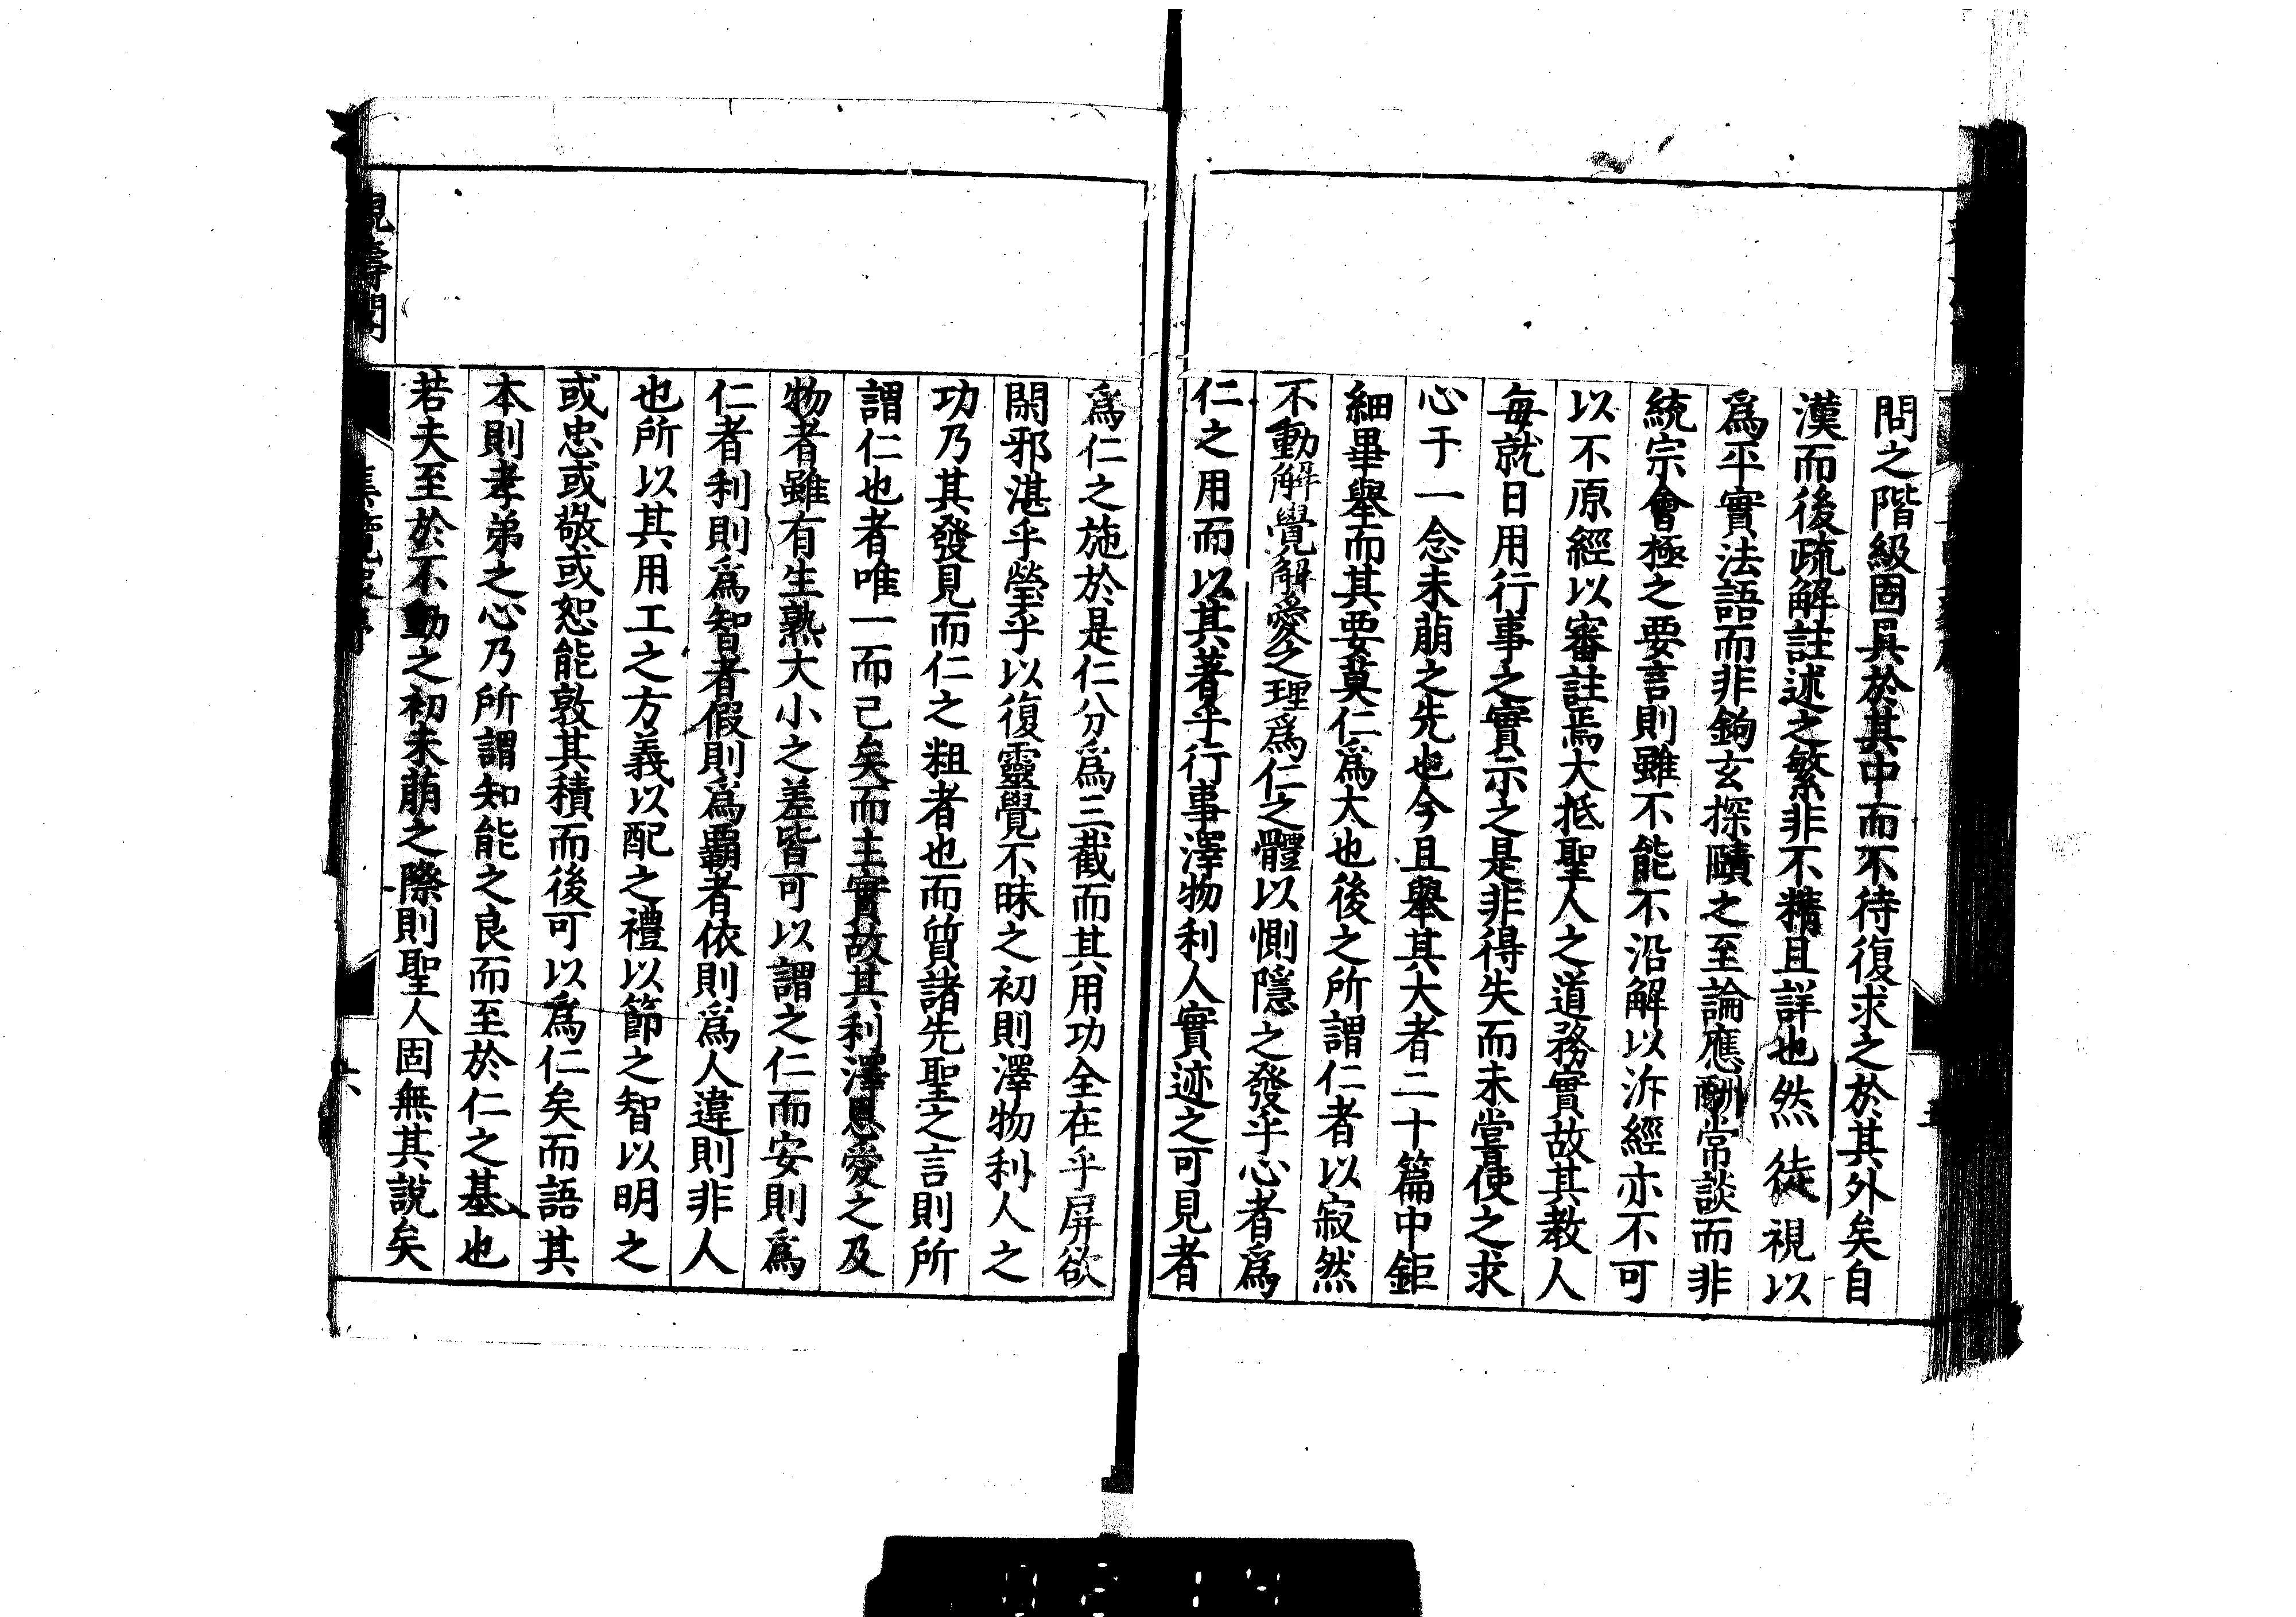 問之階級固具於其中而不待復求之於其外矣自
漢而後疏解註述之繁非不精且詳也然徒視以
爲平實法語而非鉤玄探賾之至論應酬常談而非
統宗會極之要言則雖不能不沿解以泝經亦不可
以不原經以審註焉大抵聖人之道務實故其教人
每就日用行事之實示之是非得失而未嘗使之求
心于一念未萠之先也今且舉其大者二十篇中鉅
細畢舉而其要莫仁爲大也後之所謂仁者以寂然
不動解覺解愛之理爲仁之體以惻隱之發乎心者爲
仁之用而以其著乎行事澤物利人實迹之可見者
爲仁之施於是仁分爲三截而其用功全在乎屏欲
閑邪湛乎瑩乎以復靈覺不昧之初則澤物利人之
功乃其發見而仁之粗者也而質諸先聖之言則所
謂仁也者唯一而已矣而主實故其利澤恩愛之及
物者雖有生熟大小之差皆可以謂之仁而安則爲
仁者利則爲智者假則爲覇者依則爲人違則非人
也所以其用工之方義以配之禮以節之智以明之
或忠或敬或恕能敦其積而後可以爲仁矣而語其
本則孝弟之心乃所謂知能之良而至於仁之基也
若夫至於不動之初未萠之際則聖人固無其說矣
六